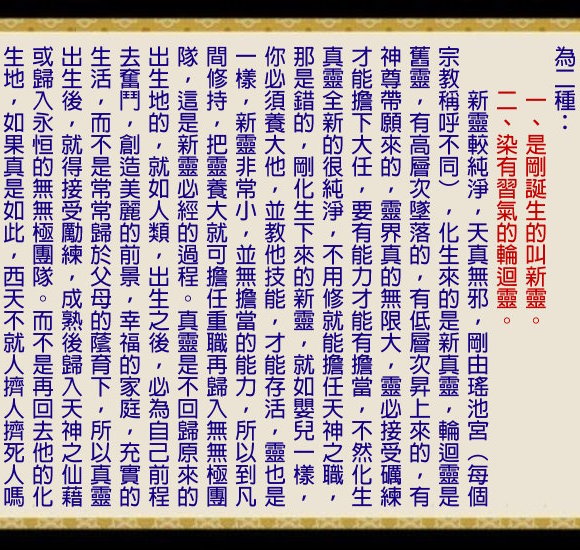 為二種：
一、是剛誕生的叫新靈。
二、染有習氣的輪迴靈。
新靈較純淨，天真無邪，剛由瑤池宮（每個
宗教稱呼不同），化生來的是新真靈，輪迴靈是
舊靈，有高層次墜落的，有低層次昇上來的，有
神尊帶願來的，靈界真的無限大，靈必接受礪練
才能擔下大任，要有能力才能有擔當，不然化生
真靈全新的很純淨，不用修就能擔任天神之職，
那是錯的，剛化生下來的新靈，就如嬰兒一樣，
你必須養大他，並教他技能，才能存活，靈也是
一樣，新靈非常小，並無擔當的能力，所以到凡
間修持，把靈養大就可擔任重職再歸入無無極團
隊，這是新靈必經的過程。真靈是不回歸原來的
出生地的，就如人類，出生之後，必為自己前程
去奮鬥，創造美麗的前景，幸福的家庭，充實的
生活，而不是常常歸於父母的蔭育下，所以真靈
出生後，就得接受勵練，成熟後歸入天神之仙藉
或歸入永恒的無無極團隊。而不是再回去他的化
生地，如果真是如此，西天不就人擠人擠死人嗎